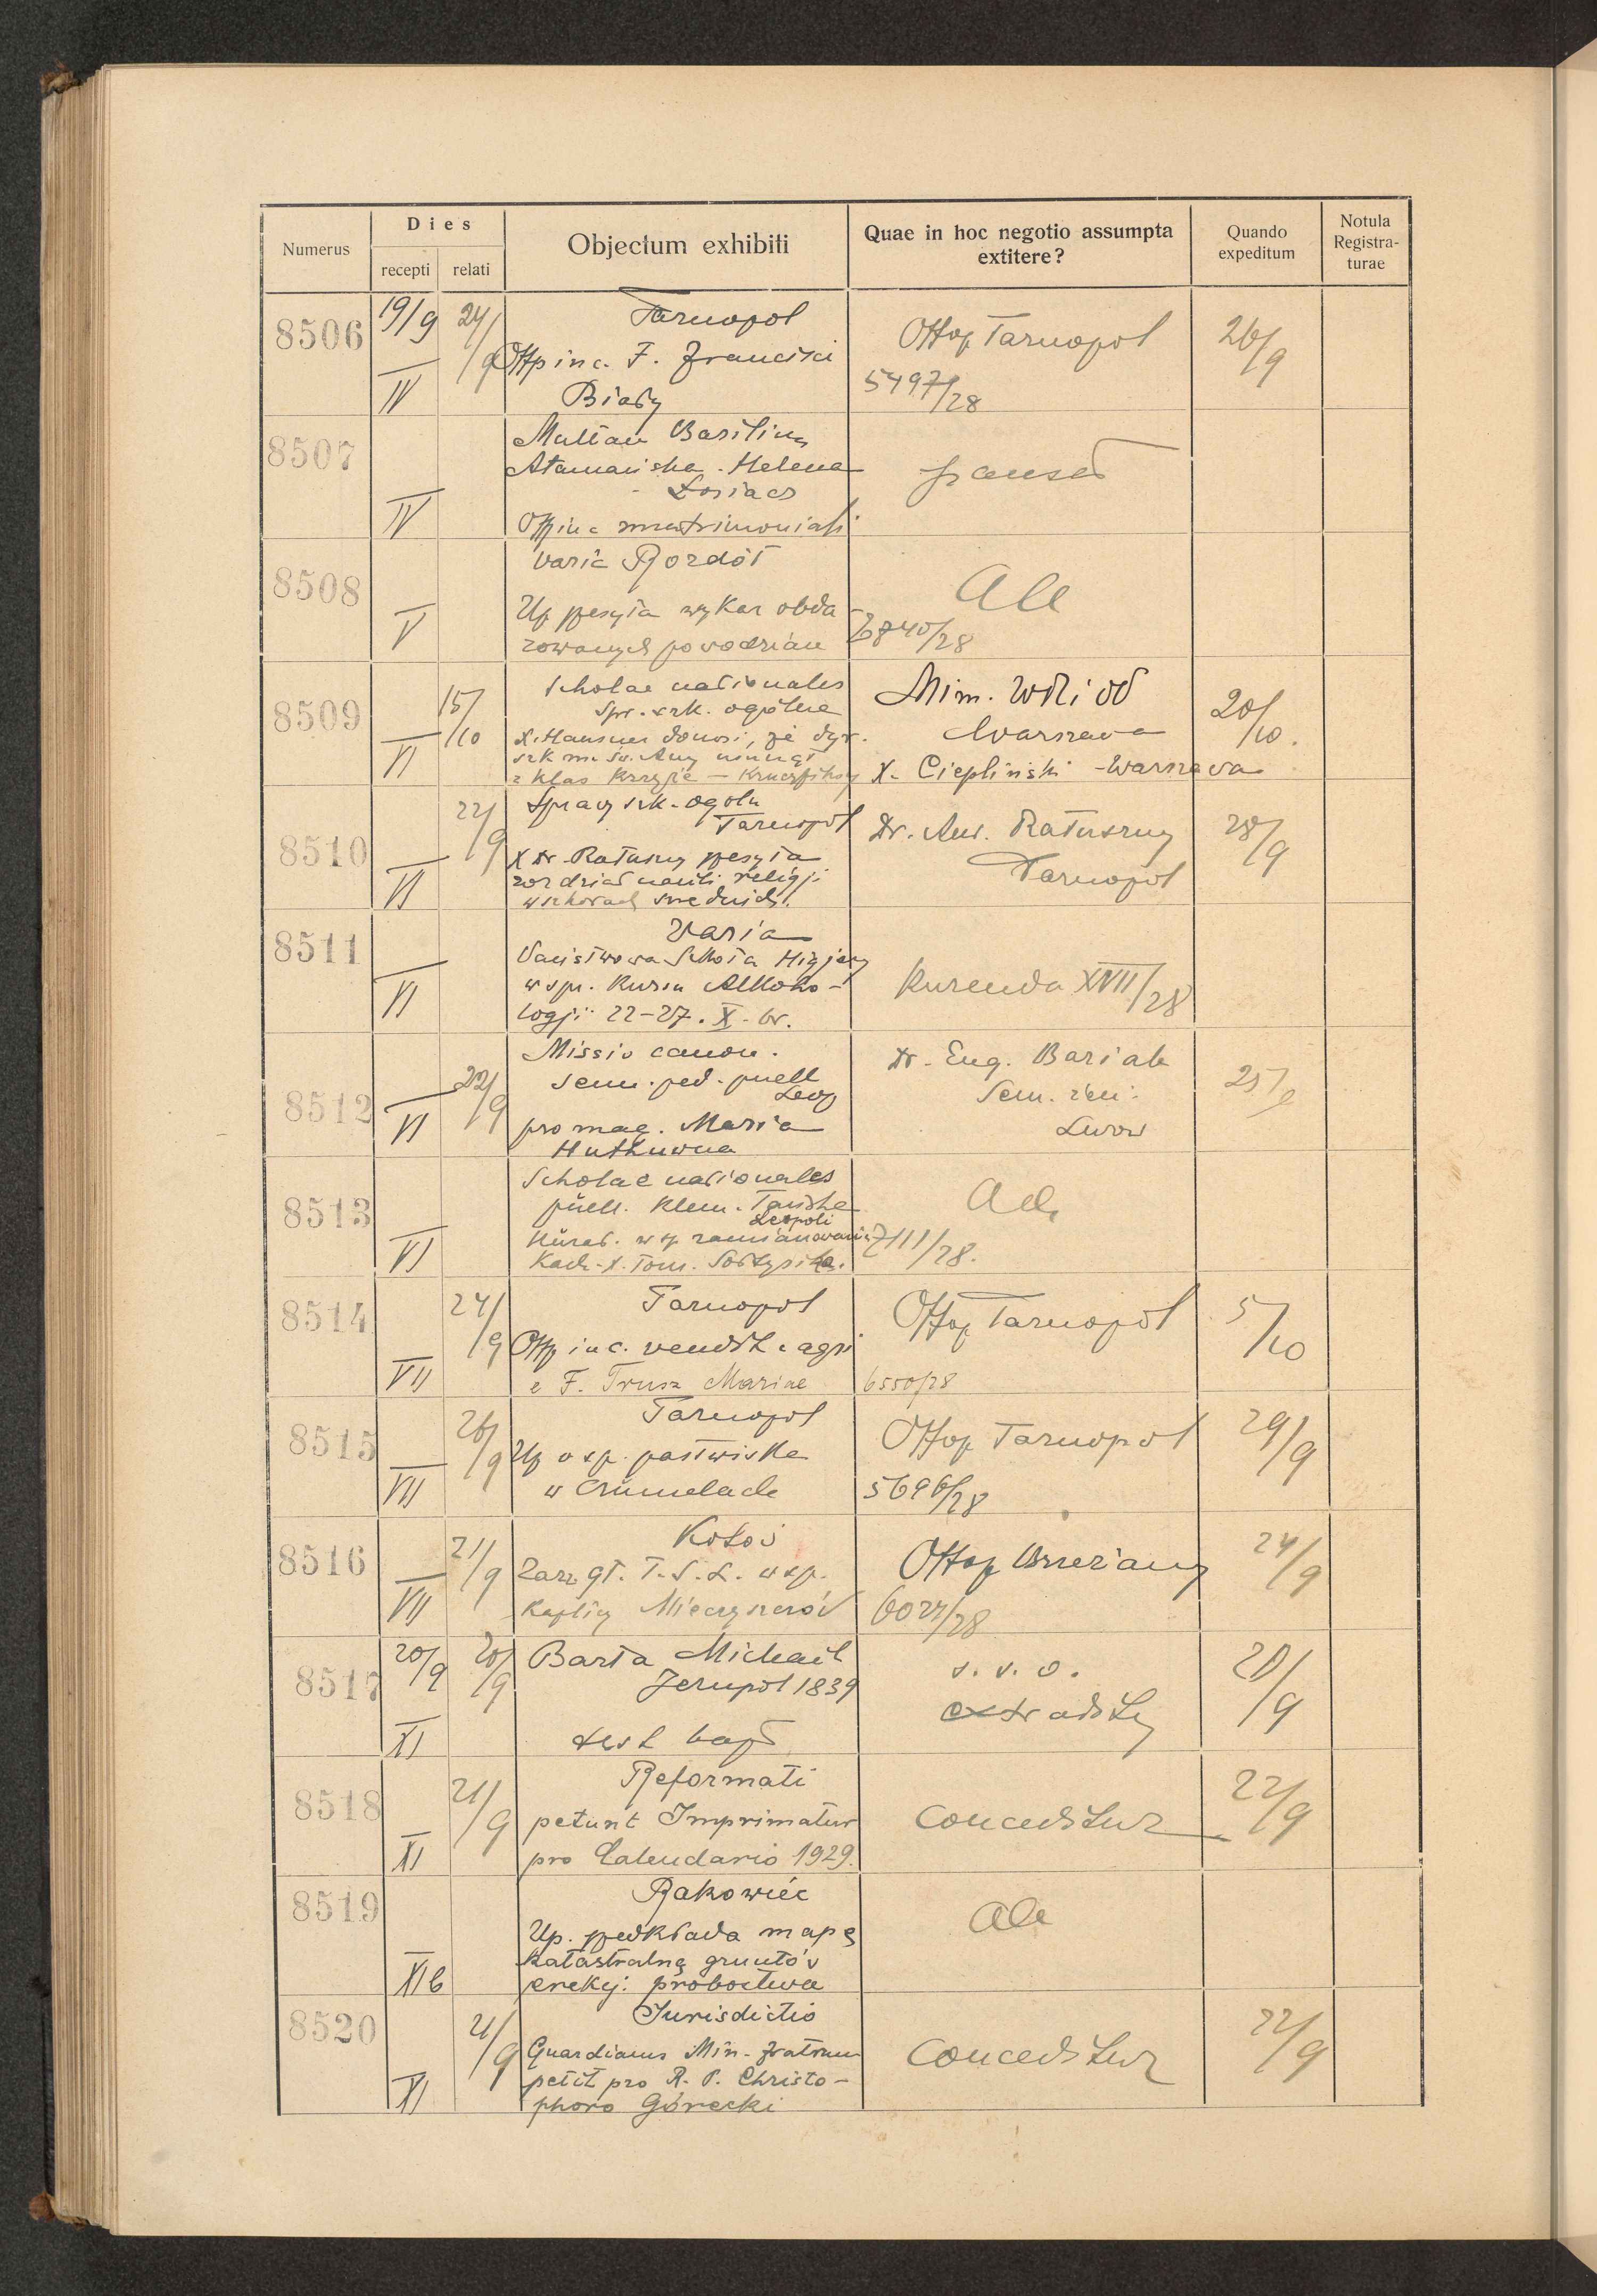 Numerus
Dies
recepti
relati
Objectum exhibiti
Quae in hoc negotio assumpta
extitere?
Quando
expeditum
Notula
Registra-
turae
8506
19/9
IV
24/9
Tarnopol
Offp in c. F. Francisci
Biały
Offop Tarnopol
5497/28
26/9
8507
IV
Multan Basilius
Atamańska Helena
Łosiacz
Offp in c matrimoniali
transeat
8508
V
Varia Rozdół
Up przesyła wykaz obda-
rowanych powodzian
Ale
6840/28
8509
VI
15/10
Scholae nationales
Spr. szk. ogólne
X. Hausner donosi, że dyr.
szk m. św. Anny usunął
z klas krzyże - krucyfiksy
Min. WRiOP
Warszawa
X. Ciepliński - Warszawa
20/10.
8510
VI
22/9
Sprawy szk. ogóln
Tarnopol
X Dr Ratuszny przesyła
rozdział nauki religji
w szkołach średnich.
Dr. Ant. Ratuszny
Tarnopol
28/9
8511
VI
Varia
Państwowa Szkoła Higjeny
w spr. Kursu Alkoho-
logji 22-27. X. br.
Kurenda XVII/28
8512
VI
22/9
Missio canon.
Sem. ped. puell
Leop
pro mag. Maria
Huthuwna
Dr. Eug. Baziak
Sem. żeń:
Lwów
25/9
8513
VI
Scholae nationales
puell. Klem. Tańska
Leopoli
Kurat. w sp. zamianowania
Kach. X. Tom.
Ale
7111/28.
8514
VII
24/9
Tarnopol
Offp in c. vendit. agri
c F. Trusz Mariae
Offop Tarnopol
6550/28
5/10
8515
VII
26/9
Tarnopol
Up o sp. pastwiska
w
Offop Tarnopol
5696/28
29/9
8516
VII
21/9
Kotów
Zarz gł. T.S.L. w sp.
Kaplicy Mieczyszczów
Offop Brzeżany
6027/28
24/9
8517
20/9
XI
20/9
Barta Michael
Jezupol 1839
test bapt
s. v. o.
extradity
20/9
8518
XI
21/9
Reformati
petunt Imprimatur
pro Calendario 1929.
Conceditur
22/9
8519
XIb
Rakowiec
Up. przedkłada mapę
katastralną gruntów
erekcj. probostwa
Ale
8520
XI
21/9
Jurisdictio
Guardianus Min. Fratrum
petit pro R. P. Christo-
phoro Górecki
Conceditur
22/9